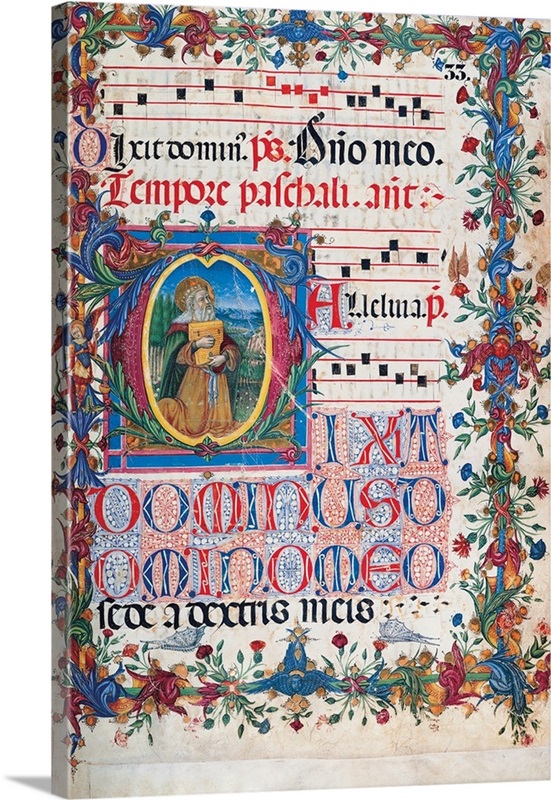 33.
Dixit domin̄. ps. Dño meo.
Tempore paschali. añt:
Alleluia. p̄.
DIXIT
DOMINUS DO
OMINO MEO
sede a dextris meis